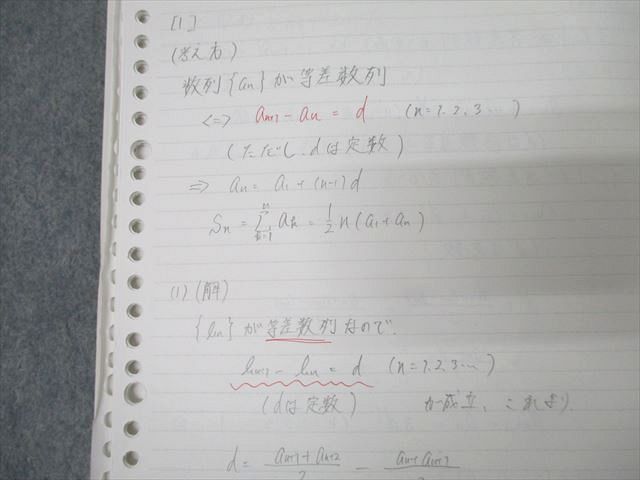 [1]
(考え方)
数列{an}が等差数列
<=> an+1 - an = d (n=1.2.3…)
(ただし、dは定数)
=> an = a1 + (n-1)d
Sn = Σ[k=1→n] ak = 1/2 n (a1+an)
(1) (解)
{bn}が等差数列なので.
bn+1 - bn = d (n=1.2.3…)
(dは定数) が成立、これより
d = (an+1 + an+2)/2 - (an + an+1)/2